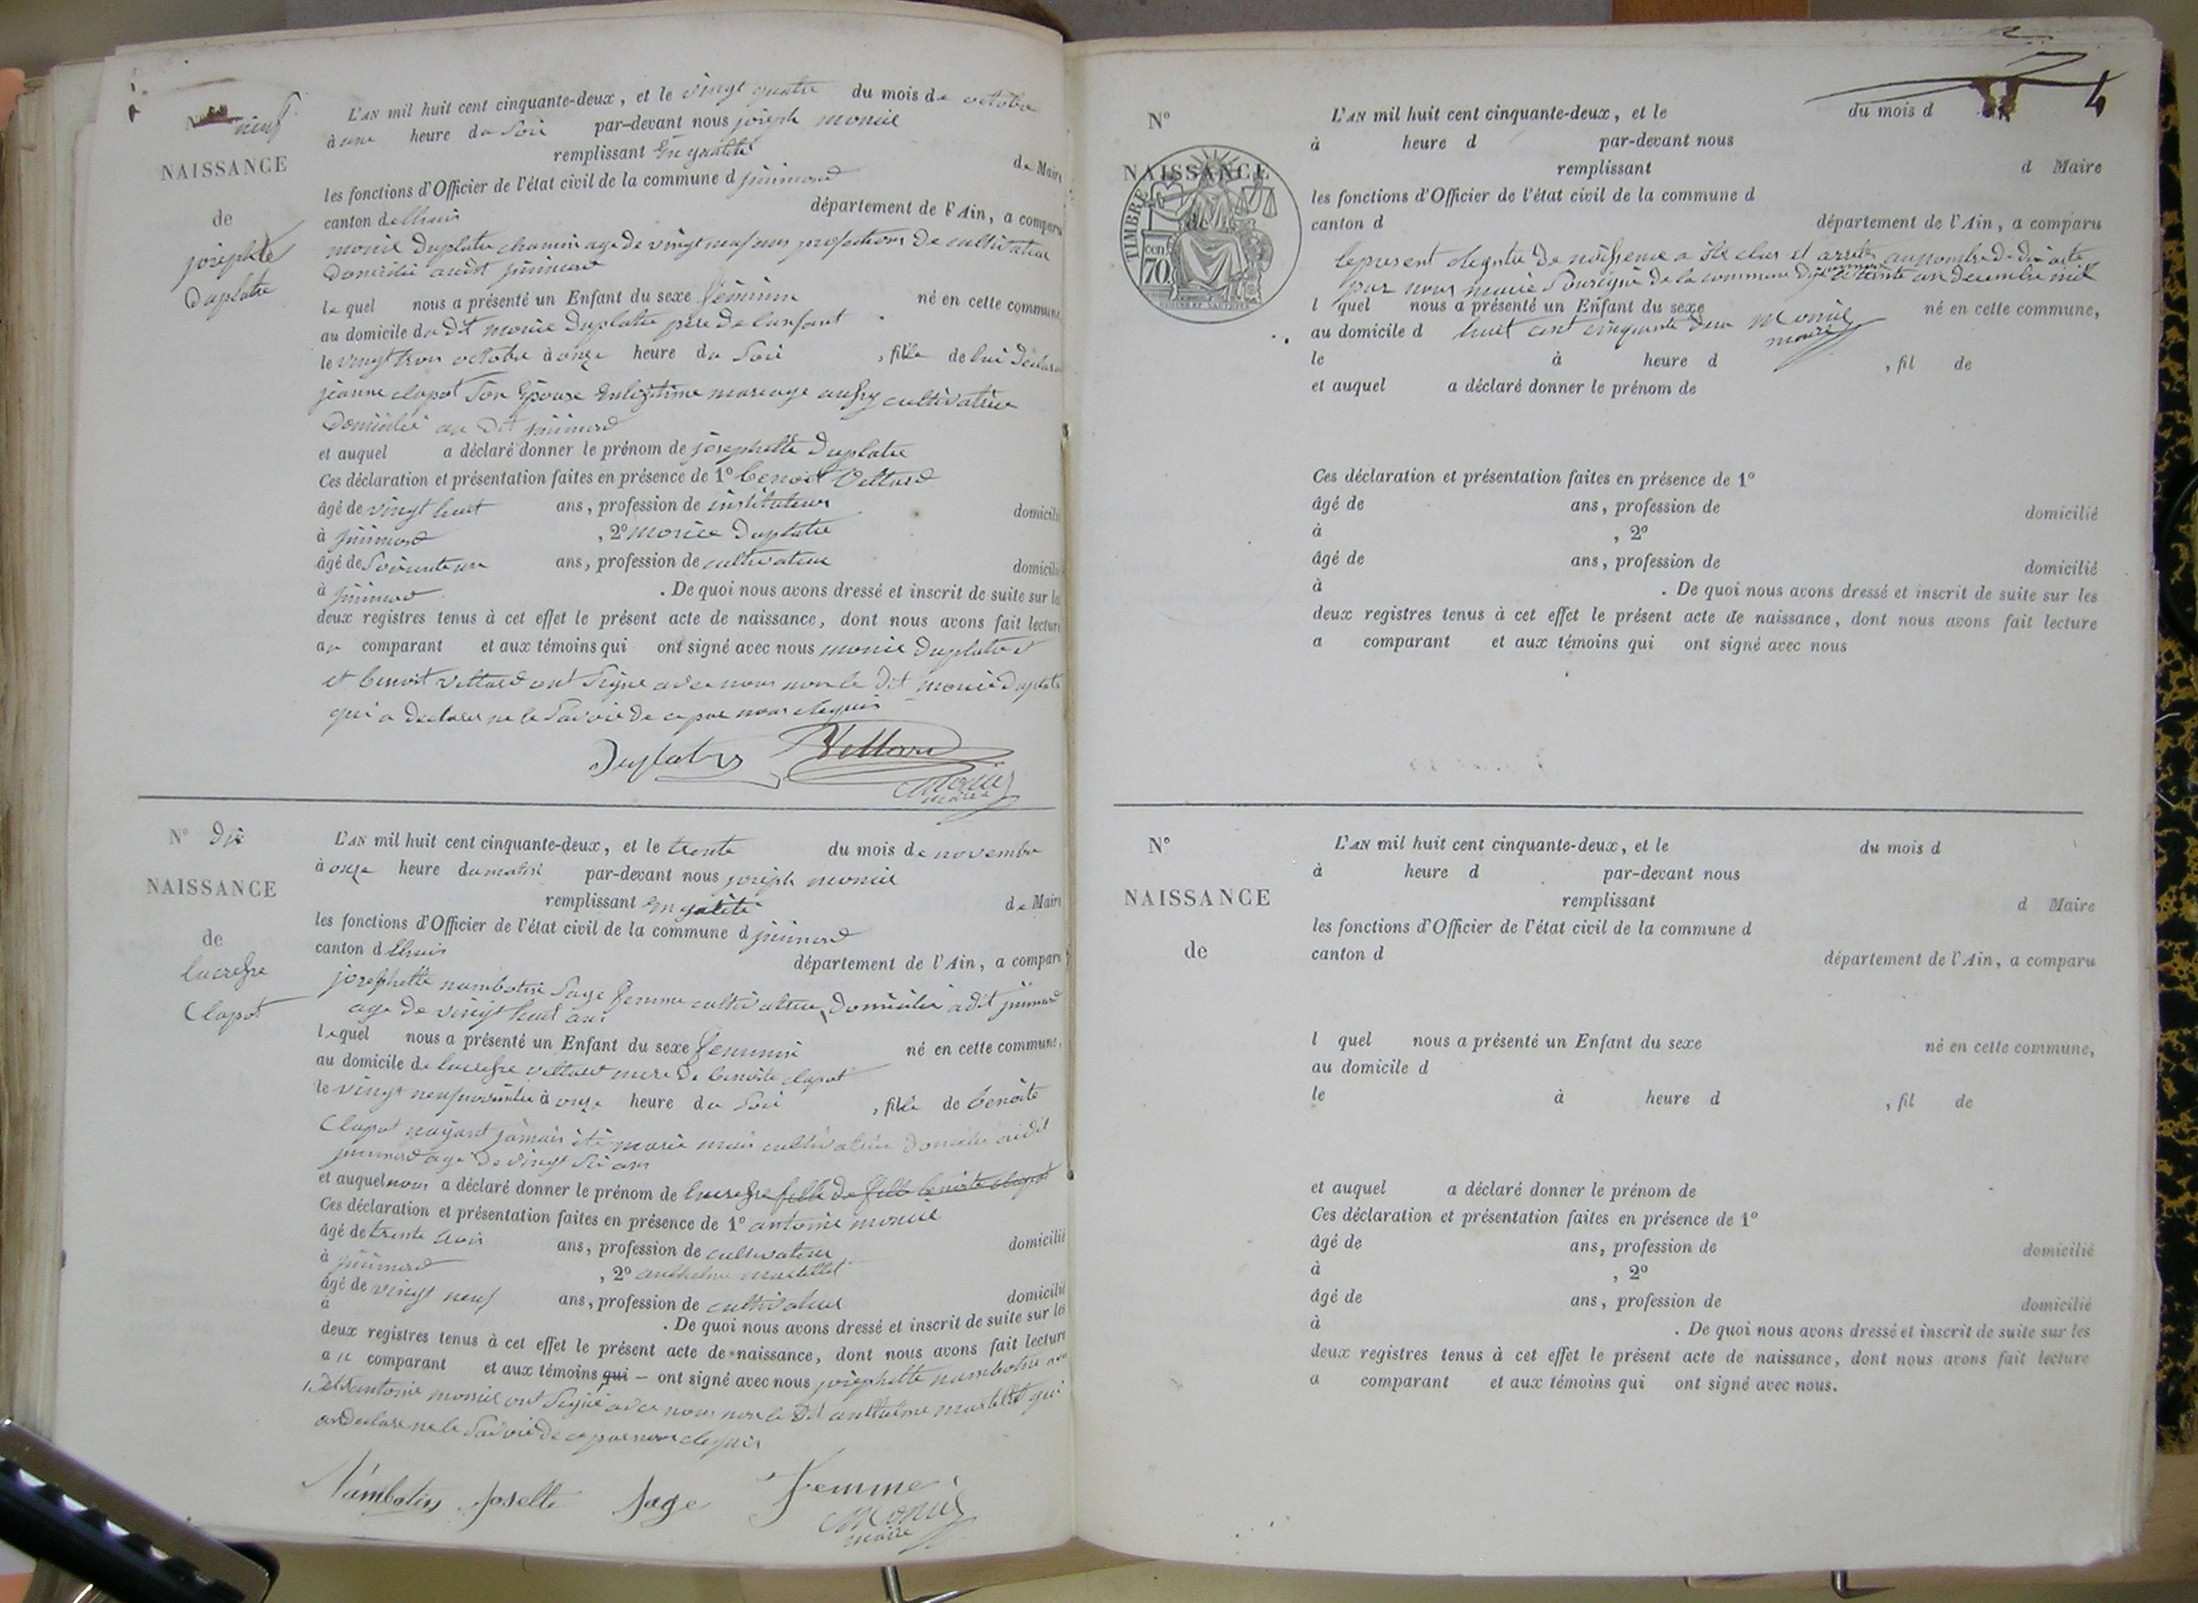 N° neuf
NAISSANCE
de
josephte
Duplatre
L'AN mil huit cent cinquante-deux, et le vingt quatre du mois de octobre
à une heure du Soir par-devant nous joseph monier
remplissant En qualité de Maire
les fonctions d'Officier de l'état civil de la commune d
canton de lhuis département de l'Ain, a comparu
age de vingt neuf ans profession de cultivateur
le quel nous a présenté un Enfant du sexe féminin né en cette commune,
au domicile du dit Duplatre père de lenfant
le vingt trois octobre à onze heure du Soir, fille de lui déclarant
jeanne clapot Son Epouse Enlegitime mariage cultivatrice
et auquel a déclaré donner le prénom de josephette Duplatre
Ces déclaration et présentation faites en présence de 1° benoit Vettard
âgé de vingt huit ans, profession de instituteur domicilié
à , 2° Duplatre
âgé de ans, profession de cultivateur domicilié
à . De quoi nous avons dressé et inscrit de suite sur les
deux registres tenus à cet effet le présent acte de naissance, dont nous avons fait lecture
au comparant et aux témoins qui ont signé avec nous Duplatre
et benoit Vettard ont Signe avec nous non le dit
qui a declarer ne le Savoir de ce par nous requis
Duplatre Vettard
Monier
maire
N° Dix
NAISSANCE
de
lucresse
Clapot
L'AN mil huit cent cinquante-deux, et le trente du mois de novembre
à onze heure du matin par-devant nous joseph monier
remplissant En qualité de Maire
les fonctions d'Officier de l'état civil de la commune d
canton d lhuis département de l'Ain, a comparu
josephette nambotin Sage femme cultivatrice, domiciliée
age de vingt huit ans
lequel nous a présenté un Enfant du sexe feminin né en cette commune,
au domicile de lucresse vettard mere de benoite clapot
le vingt neuf novembre à onze heure du Soir, fille de benoite
Clapot nayant jamais été marié mais cultivatrice
age de vingt six ans
et auquel nous a déclaré donner le prénom de lucresse fille de benoite clapot
Ces déclaration et présentation faites en présence de 1° antoine monier
âgé de trente trois ans, profession de cultivateur domicilié
à , 2° anthelme martellet
âgé de vingt neuf ans, profession de cultivateur domicilié
à . De quoi nous avons dressé et inscrit de suite sur les
deux registres tenus à cet effet le présent acte de naissance, dont nous avons fait lecture
au comparant et aux témoins qui – ont signé avec nous josephette nambotin
antoine monier ont Signé avec nous non le dit anthelme martellet qui
a declare ne le Savoir de ce par nous requis
Nambotin Josette Sage Femme
Monier
maire
4
N°
NAISSANCE
de
TIMBRE
70
L'AN mil huit cent cinquante-deux, et le du mois d
à heure d par-devant nous
remplissant d Maire
les fonctions d'Officier de l'état civil de la commune d
canton d département de l'Ain, a comparu
le present registre de naissence a été clos et arrêté au nombre de dix acte
par nous maire Sousigné de la commune trente un decembre mil
l quel nous a présenté un Enfant du sexe né en cette commune,
au domicile d huit cent cinquante deux Monier
maire
le à heure d , fil de
et auquel a déclaré donner le prénom de
Ces déclaration et présentation faites en présence de 1°
âgé de ans, profession de domicilié
à , 2°
âgé de ans, profession de domicilié
à . De quoi nous avons dressé et inscrit de suite sur les
deux registres tenus à cet effet le présent acte de naissance, dont nous avons fait lecture
a comparant et aux témoins qui ont signé avec nous
N°
NAISSANCE
de
L'AN mil huit cent cinquante-deux, et le du mois d
à heure d par-devant nous
remplissant d Maire
les fonctions d'Officier de l'état civil de la commune d
canton d département de l'Ain, a comparu
l quel nous a présenté un Enfant du sexe né en cette commune,
au domicile d
le à heure d , fil de
et auquel a déclaré donner le prénom de
Ces déclaration et présentation faites en présence de 1°
âgé de ans, profession de domicilié
à , 2°
âgé de ans, profession de domicilié
à . De quoi nous avons dressé et inscrit de suite sur les
deux registres tenus à cet effet le présent acte de naissance, dont nous avons fait lecture
a comparant et aux témoins qui ont signé avec nous.